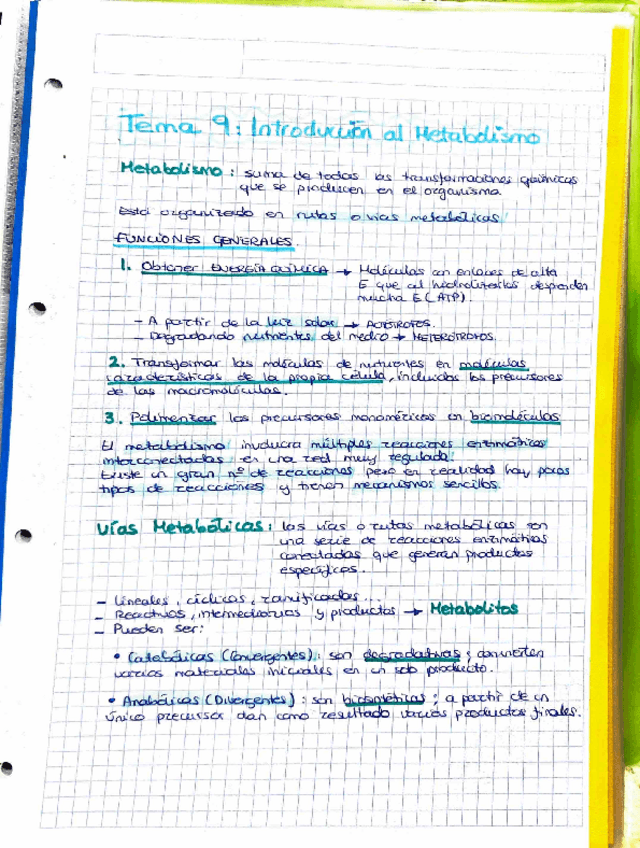 Tema 9: Introducción al Metabolismo
Metabolismo: suma de todas las transformaciones químicas
que se producen en el organismo.
Está organizado en rutas o vías metabólicas.
FUNCIONES GENERALES
1. Obtener ENERGÍA QUÍMICA → Moléculas con enlaces de alta
E que al hidrolizarlos desprenden
mucha E (ATP).
- A partir de la luz solar → AUTÓTROFOS.
- Degradando nutrientes del medio → HETERÓTROFOS.
2. Transformar las moléculas de nutrientes en moléculas
características de la propia célula, incluidos los precursores
de las macromoléculas.
3. Polimerizar los precursores monoméricos en biomoléculas
El metabolismo involucra múltiples reacciones enzimáticas
interconectadas en una red muy regulada.
Existe un gran nº de reacciones pero en realidad hay pocos
tipos de reacciones y tienen mecanismos sencillos.
Vías Metabólicas: las vías o rutas metabólicas son
una serie de reacciones enzimáticas
conectadas que generan productos
específicos.
- Lineales, cíclicas, ramificadas...
- Reactivos, intermediarios y productos → Metabolitos
- Pueden ser:
• Catabólicas (Convergentes): son degradativas; convierten
varios materiales iniciales en un solo producto.
• Anabólicas (Divergentes): son biosintéticas; a partir de un
único precursor dan como resultado varios productos finales.